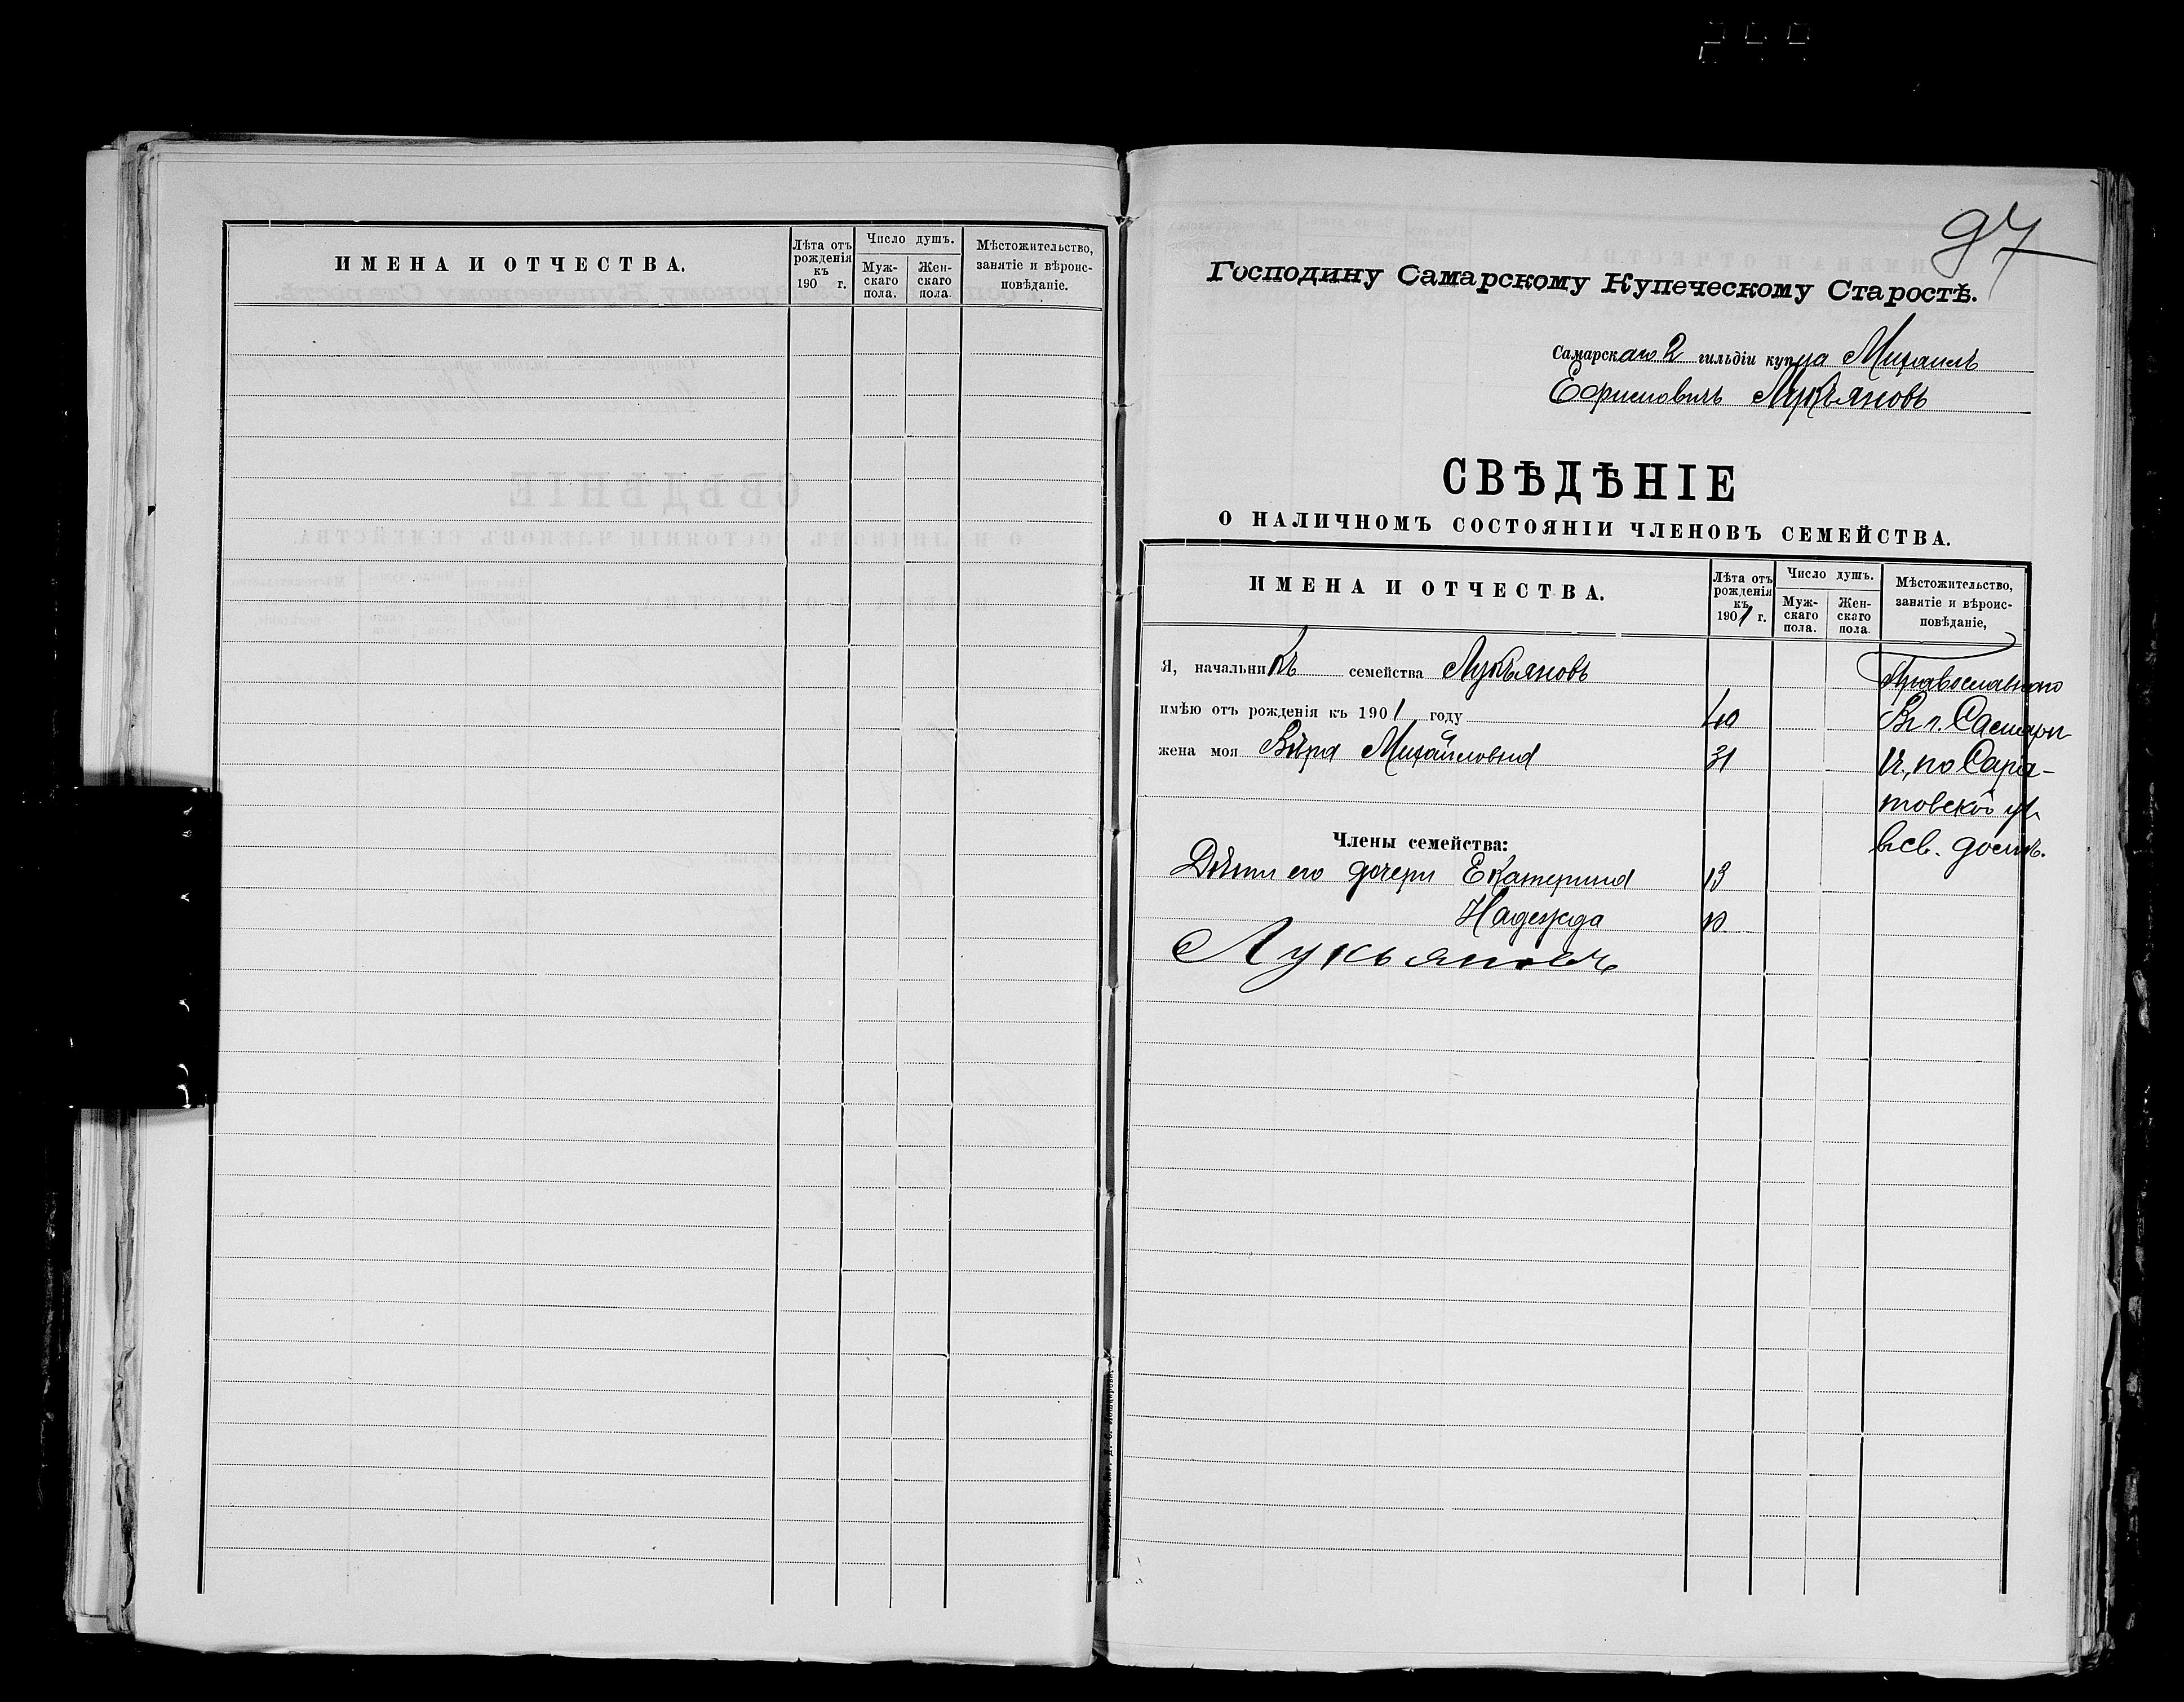 ИМЕНА И ОТЧЕСТВА.
Лѣта отъ рожденія къ 190 г.
Число душъ.
Мужскаго пола.
Женскаго пола.
Мѣстожительство, занятіе и вѣроисповѣданіе.
97
Господину Самарскому Купеческому Старостѣ.
Самарскаго 2 гильдіи купца Михаилъ
Ефимовичъ Лукьяновъ
СВѢДѢНІЕ
О НАЛИЧНОМЪ СОСТОЯНІИ ЧЛЕНОВЪ СЕМЕЙСТВА.
ИМЕНА И ОТЧЕСТВА.
Лѣта отъ
рожденія
къ
1901 г.
Число душъ.
Муж-
скаго
пола.
Жен-
скаго
пола.
Мѣстожительство,
занятіе и вѣроис-
повѣданіе,
Я, начальникъ семейства Лукьяновъ
Православнаго
имѣю отъ рожденія къ 1901 году 40
Въ г. Самары
жена моя Вѣра Михайловна 31
и, по Сара-
товской ул.
Члены семейства:
въ св. домѣ.
Дѣти его дочери Екатерина 13
Надежда 10
Лукьяновъ